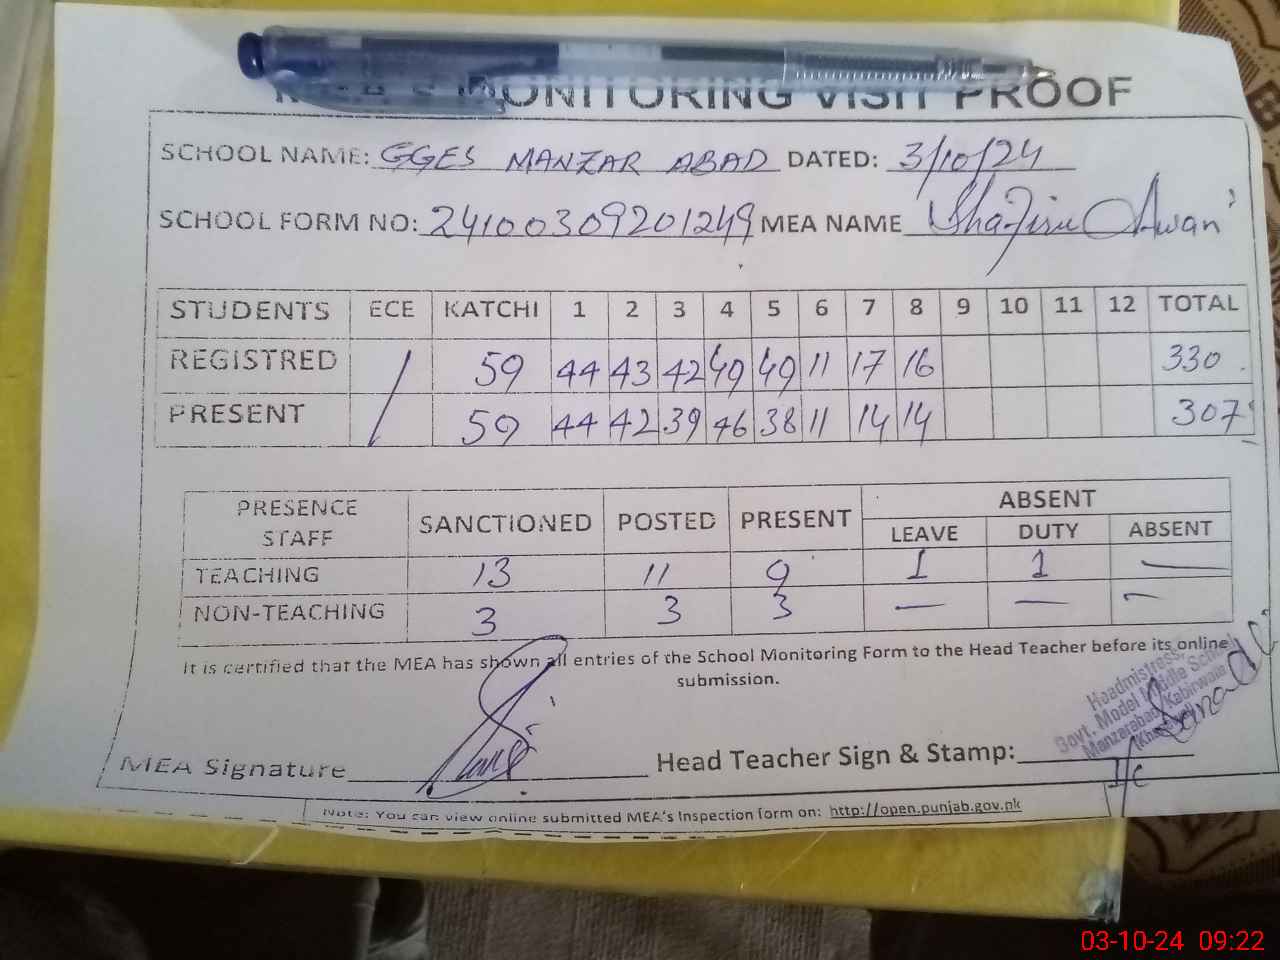 MEA'S MONITORING VISIT PROOF
SCHOOL NAME: GGES MANZAR ABAD DATED: 3/10/24
SCHOOL FORM NO: 24100309201249 MEA NAME Awan
STUDENTS ECE KATCHI 1 2 3 4 5 6 7 8 9 10 11 12 TOTAL
REGISTRED / 59 44 43 42 49 49 11 17 16 330
PRESENT 59 44 42 39 46 38 11 14 14 307
PRESENCE STAFF SANCTIONED POSTED PRESENT ABSENT
LEAVE DUTY ABSENT
TEACHING 13 11 9 1 1 —
NON-TEACHING 3 3 3 — — —
It is certified that the MEA has shown all entries of the School Monitoring Form to the Head Teacher before its online
submission.
Headmistress,
Govt. Model Middle School
Manzarabad Kabirwala
MEA Signature Head Teacher Sign & Stamp:
I/C
Note: You can view online submitted MEA's Inspection form on: http://open.punjab.gov.pk
03-10-24 09:22